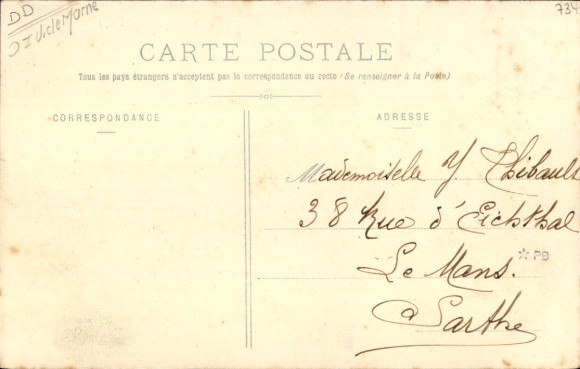 DD
734
CARTE POSTALE
Tous les pays étrangers n'acceptent pas la correspondance au recto (Se renseigner à la Poste)
CORRESPONDANCE
ADRESSE
Mademoiselle Y Thibault
38 Rue d'Eichthal
PB
Le Mans.
Sarthe